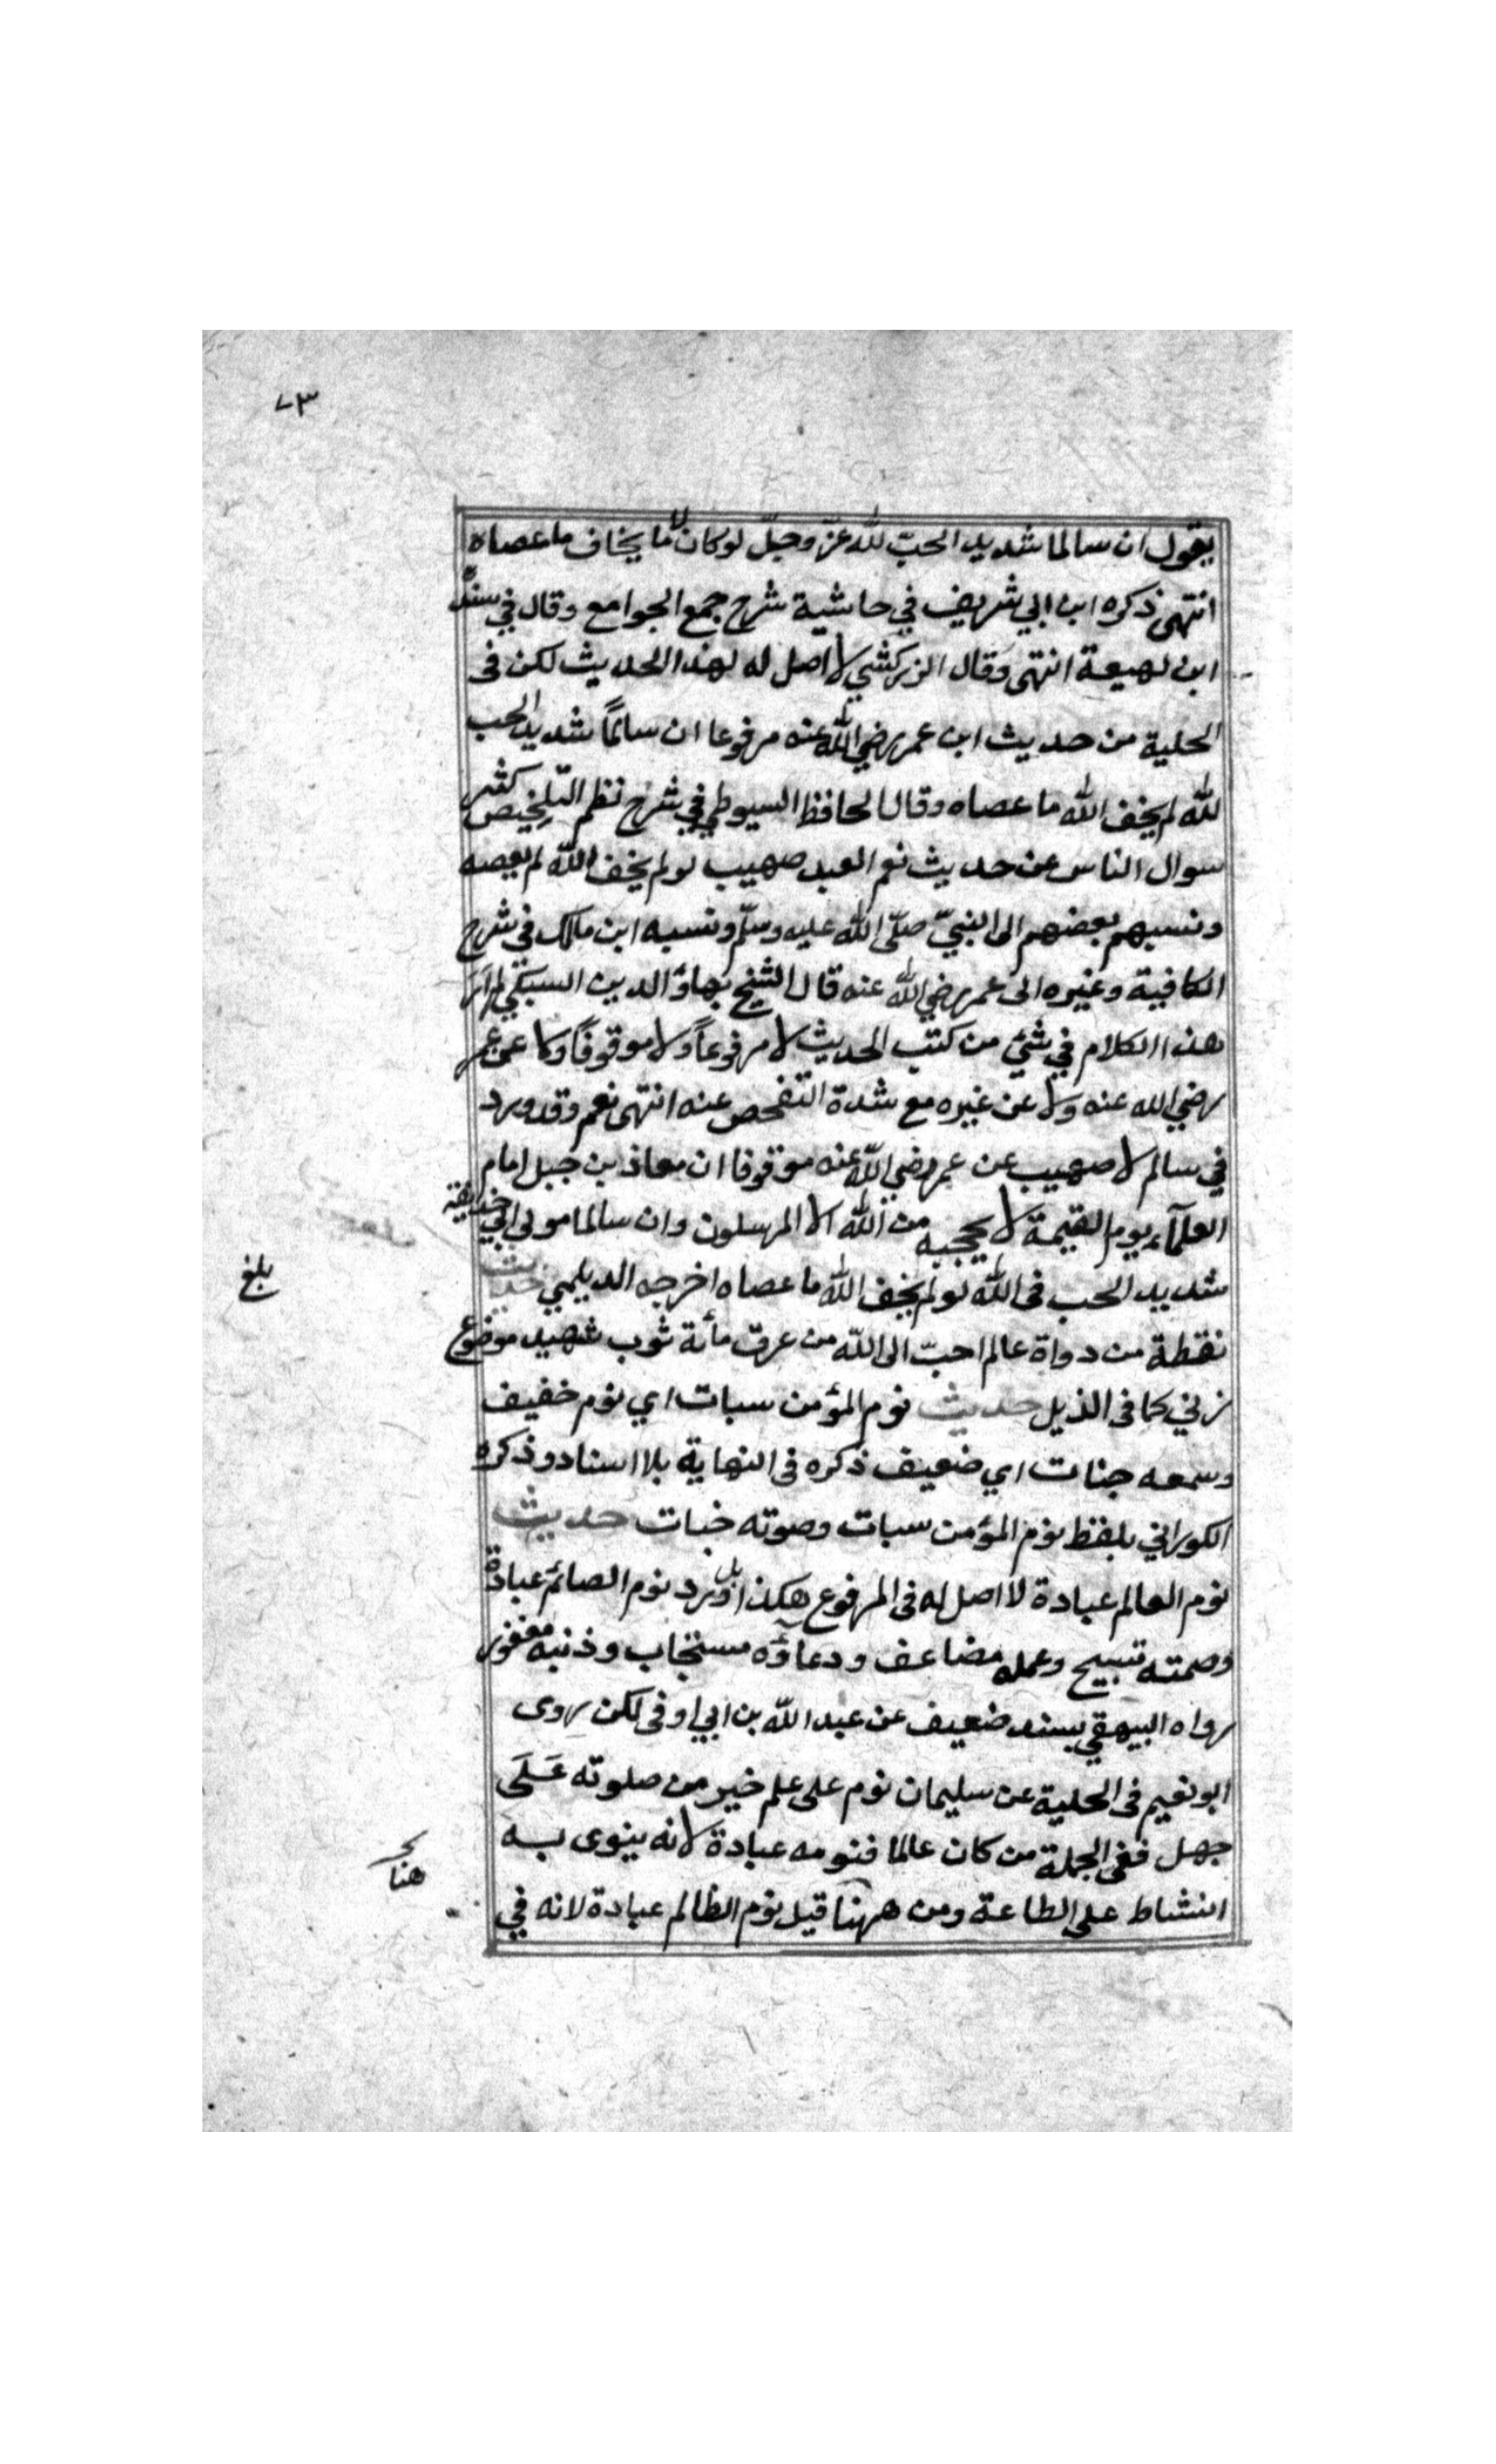 ٧٣
يقول ان سالما شديد الحبّ لله عزّ وجلّ لوكان لا ما يخاف ما عصاه
انتهى ذكره ابن ابي شريف في حاشية شرح جمع الجوامع وقال في سنده
ابن لهيعة انتهى وَقال الزركشي لا اصل له لهذا الحديث لكن فى
الحلية من حديث ابن عمر رضي الله عنه مرفوعا ان سالمًا شديد الحب
لله لم يخف الله ما عصاه وقال الحافظ السيوطي في شرح نظم التلخيص كثر
سوال الناس عن حديث نعم العبد صهيب لو لم يخف الله لم يعصه
ونسبهم بعضهم الى النبيّ صلّى الله عليه وسلّم ونسبه ابن مالك في شرح
الكافية وغيره الى عمر رضي الله عنه قال الشيخ بهاؤ الدين السبكي لم ار
هذا الكلام في شيئ من كتب الحديث لا مرفوعاً ولا موقوفًا ولا عن عمر
رضي الله عنه ولا عن غيره مع شدة التفحص عنه انتهى نعم وقد ورد
في سالم لا صهيب عن عمر رضي الله عنه موقوفا ان معاذ بن جبل امام
العلمآء يوم القيمة لا يحجبه من الله الا المرسلون وان سالما مولى ابي حذيفة
شديد الحب فى الله لو لم يخف الله ما عصاه اخرجه الديلمي حديث
بلغ
نقطة من دواة عالم احبّ الى الله من عرق مأئة ثوب شهيد موضوع
زني كما فى الذيل حديث نوم المؤمن سبات اي نوم خفيف
وسمعه جنات اي ضعيف ذكره فى النهاية بلا اسناد وذكره
الكوراني بلفظ نوم المؤمن سبات وصوته خبات حديث
نوم العالم عبادة لا اصل له فى المرفوع هكذا بل ورد نوم الصائم عبادة
وصمته تسبيح وعمله مضاعف ودعاؤه مستجاب وذنبه مغفور
رواه البيهقي بسند ضعيف عن عبد الله بن ابي اوفى لكن روى
ابو نعيم فى الحلية عن سليمان نوم على علم خير من صلوته عَلَى
جهل ففى الجملة من كان عالما فنومه عبادة لانه ينوى به
هنا
النشاط على الطاعة ومن ههنا قيل نوم الظالم عبادة لانه في